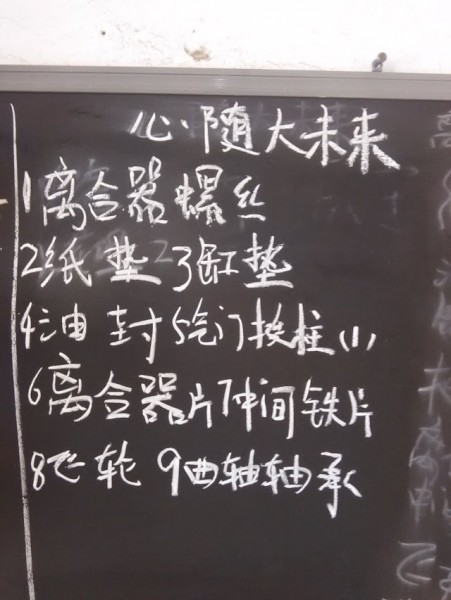 心随大未来
1离合器螺丝
2纸垫 3缸垫
4油封 5气门挺柱(1)
6离合器片 7中间铁片
8飞轮 9曲轴轴承